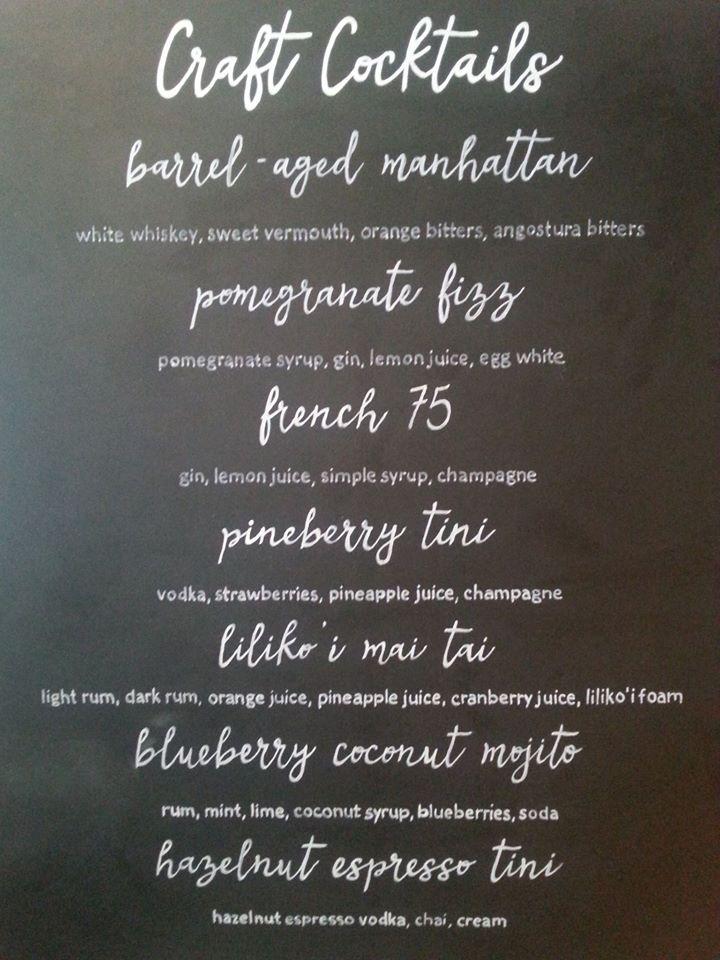 Craft Cocktails
barrel-aged manhattan
white whiskey, sweet vermouth, orange bitters, angostura bitters
pomegranate fizz
pomegranate syrup, gin, lemon juice, egg white
french 75
gin, lemon juice, simple syrup, champagne
pineberry tini
vodka, strawberries, pineapple juice, champagne
liliko'i mai tai
light rum, dark rum, orange juice, pineapple juice, cranberry juice, liliko'i foam
blueberry coconut mojito
rum, mint, lime, coconut syrup, blueberries, soda
hazelnut espresso tini
hazelnut espresso vodka, chai, cream